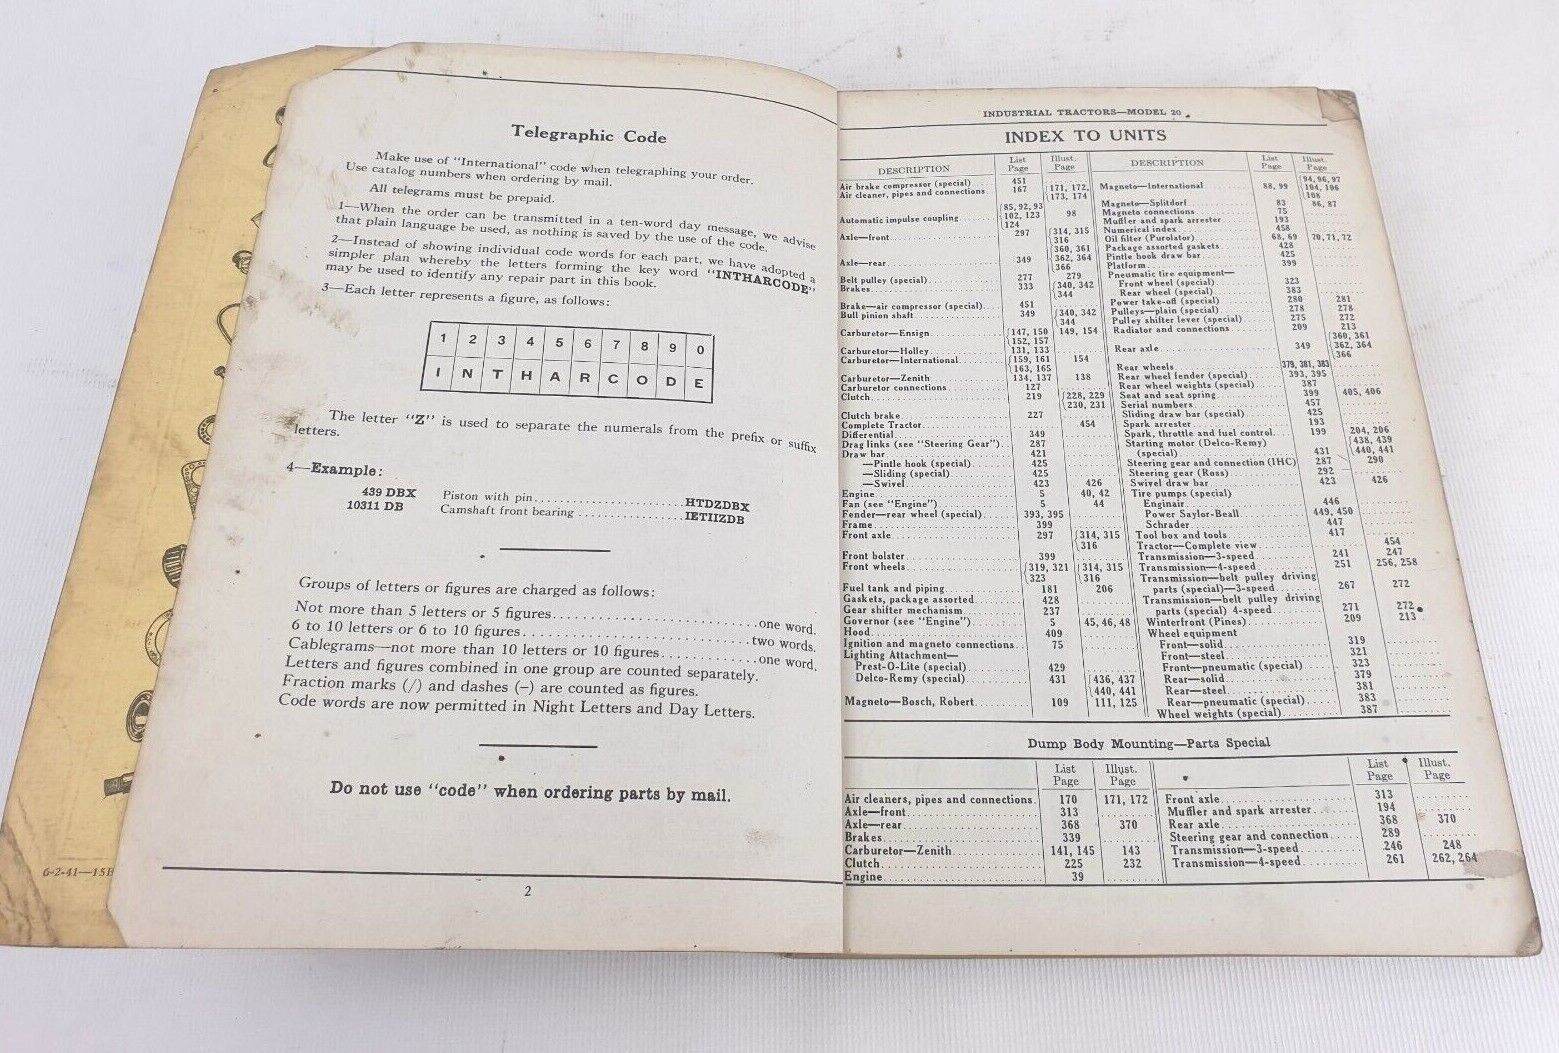 Telegraphic Code
Make use of "International" code when telegraphing your order.
Use catalog numbers when ordering by mail.
All telegrams must be prepaid.
1—When the order can be transmitted in a ten-word day message, we advise
that plain language be used, as nothing is saved by the use of the code.
2—Instead of showing individual code words for each part, we have adopted a
simpler plan whereby the letters forming the key word "INTHARCODE"
may be used to identify any repair part in this book.
3—Each letter represents a figure, as follows:
1 2 3 4 5 6 7 8 9 0
I N T H A R C O D E
The letter "Z" is used to separate the numerals from the prefix or suffix
letters.
4—Example:
439 DBX Piston with pin HTDZDBX
10311 DB Camshaft front bearing IETIIZDB
Groups of letters or figures are charged as follows:
Not more than 5 letters or 5 figures one word.
6 to 10 letters or 6 to 10 figures two words.
Cablegrams—not more than 10 letters or 10 figures one word.
Letters and figures combined in one group are counted separately.
Fraction marks (/) and dashes (–) are counted as figures.
Code words are now permitted in Night Letters and Day Letters.
Do not use "code" when ordering parts by mail.
2
6-2-41—15
INDUSTRIAL TRACTORS—MODEL 20
INDEX TO UNITS
DESCRIPTION List Page Illust. Page
Air brake compressor (special) 451
Air cleaner, pipes and connections 167 171, 172, 173, 174
Automatic impulse coupling 85, 92, 93 102, 123 124 98
Axle—front 297 314, 315 316
Axle—rear 349 360, 361 362, 364 366
Belt pulley (special) 277 279
Brakes 333 340, 342 344
Brake—air compressor (special) 451
Bull pinion shaft 349 340, 342 344
Carburetor—Ensign 147, 150 152, 157 149, 154
Carburetor—Holley 131, 133
Carburetor—International 159, 161 163, 165 154
Carburetor—Zenith 134, 137 138
Carburetor connections 127
Clutch 219 228, 229 230, 231
Clutch brake 227
Complete Tractor 454
Differential 349
Drag links (see "Steering Gear") 287
Draw bar 421
—Pintle hook (special) 425
—Sliding (special) 425
—Swivel 423 426
Engine 5 40, 42
Fan (see "Engine") 5 44
Fender—rear wheel (special) 393, 395
Frame 399
Front axle 297 314, 315 316
Front bolster 399
Front wheels 319, 321 323 314, 315 316
Fuel tank and piping 181 206
Gaskets, package assorted 428
Gear shifter mechanism 237
Governor (see "Engine") 5 45, 46, 48
Hood 409
Ignition and magneto connections 75
Lighting Attachment—
Prest-O-Lite (special) 429
Delco-Remy (special) 431 436, 437 440, 441
Magneto—Bosch, Robert 109 111, 125
DESCRIPTION List Page Illust. Page
Magneto—International 88, 99 94, 96, 97 104, 106 108
Magneto—Splitdorf 83 86, 87
Magneto connections 75
Muffler and spark arrester 193
Numerical index 458
Oil filter (Purolator) 68, 69 70, 71, 72
Package assorted gaskets 428
Pintle hook draw bar 425
Platform 399
Pneumatic tire equipment—
Front wheel (special) 323
Rear wheel (special) 383
Power take-off (special) 280 281
Pulleys—plain (special) 278 278
Pulley shifter lever (special) 275 272
Radiator and connections 209 213
Rear axle 349 360, 361 362, 364 366
Rear wheels 379, 381, 383
Rear wheel fender (special) 393, 395
Rear wheel weights (special) 387
Seat and seat spring 399 405, 406
Serial numbers 457
Sliding draw bar (special) 425
Spark arrester 193
Spark, throttle and fuel control 199 204, 206
Starting motor (Delco-Remy)
(special) 431 438, 439 440, 441
Steering gear and connection (IHC) 287 290
Steering gear (Ross) 292
Swivel draw bar 423 426
Tire pumps (special)
Enginair 446
Power Saylor-Beall 449, 450
Schrader 447
Tool box and tools 417
Tractor—Complete view 454
Transmission—3-speed 241 247
Transmission—4-speed 251 256, 258
Transmission—belt pulley driving
parts (special)—3-speed 267 272
Transmission—belt pulley driving
parts (special) 4-speed 271 272
Winterfront (Pines) 209 213
Wheel equipment
Front—solid 319
Front—steel 321
Front—pneumatic (special) 323
Rear—solid 379
Rear—steel 381
Rear—pneumatic (special) 383
Wheel weights (special) 387
Dump Body Mounting—Parts Special
List Page Illust. Page
Air cleaners, pipes and connections 170 171, 172
Axle—front 313
Axle—rear 368 370
Brakes 339
Carburetor—Zenith 141, 145 143
Clutch 225 232
Engine 39
List Page Illust. Page
Front axle 313
Muffler and spark arrester 194
Rear axle 368 370
Steering gear and connection 289
Transmission—3-speed 246 248
Transmission—4-speed 261 262, 264